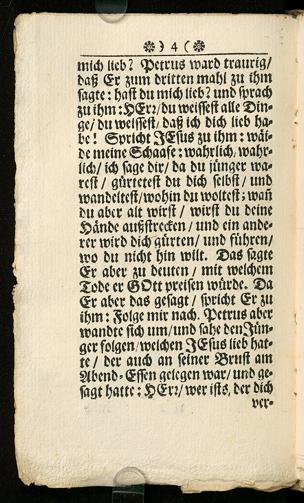 ❁ ) 4 ( ❁
mich lieb? Petrus ward traurig/
daß Er zum dritten mahl zu ihm
sagte: hast du mich lieb? und sprach
zu ihm: HErꝛ/ du weissest alle Din-
ge/ du weissest/ daß ich dich lieb ha-
be! Spricht JEsus zu ihm: wäi-
de meine Schaafe: wahrlich/ wahr-
lich/ ich sage dir/ da du jünger wa-
rest/ gürtetest du dich selbst/ und
wandeltest/ wohin du woltest: wañ
du aber alt wirst/ wirst du deine
Hände ausstrecken/ und ein ande-
rer wird dich gürten/ und führen/
wo du nicht hin wilt. Das sagte
Er aber zu deuten/ mit welchem
Tode er GOtt preisen würde. Da
Er aber das gesagt/ spricht Er zu
ihm: Folge mir nach. Petrus aber
wandte sich um/ und sahe den Jün-
ger folgen/ welchen JEsus lieb hat-
te/ der auch an seiner Brust am
Abend-Essen gelegen war/ und ge-
sagt hatte: HErꝛ/ wer ists, der dich
ver-